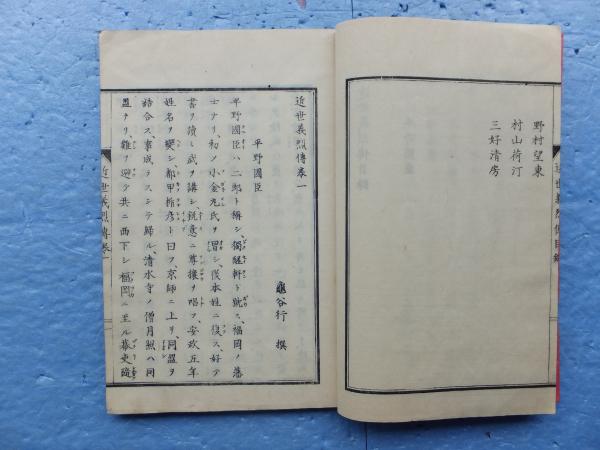 野村望東
村山荷汀
三好清房
近世義烈傳目録
近世義烈傳卷一
龜谷行 撰
平野國臣
平野國臣ハ二郎ト稱シ、獨醒軒ト號ス、福岡ノ藩
士ナリ、初メ小金丸氏ヲ冒シ、後本姓ニ復ス、好テ
書ヲ讀ミ武ヲ講シ、鋭意ニ尊攘ヲ唱フ、安政五年
姓名ヲ變シ、都甲楯彦ト曰フ、京師ニ上リ、同盟ヲ
結合ス、事成ラスシテ歸ル、清水寺ノ僧月照ハ同
盟ナリ、難ヲ避ケ共ニ西下シ、福岡ニ至ル、幕吏臨
近世義烈傳卷一